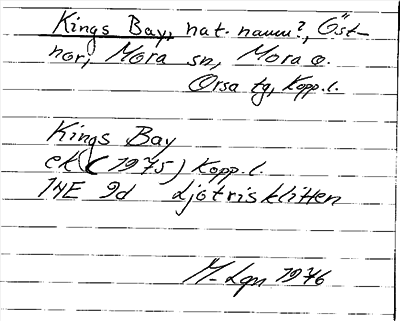 Kings Bay, nat. namn?, Öst-
nor, Mora sn, Mora o.
Orsa tg, Kopp.l.
Kings Bay
ek (1975) Kopp.l.
14E 9d Ljotrisklitten
M-Lgn 1976